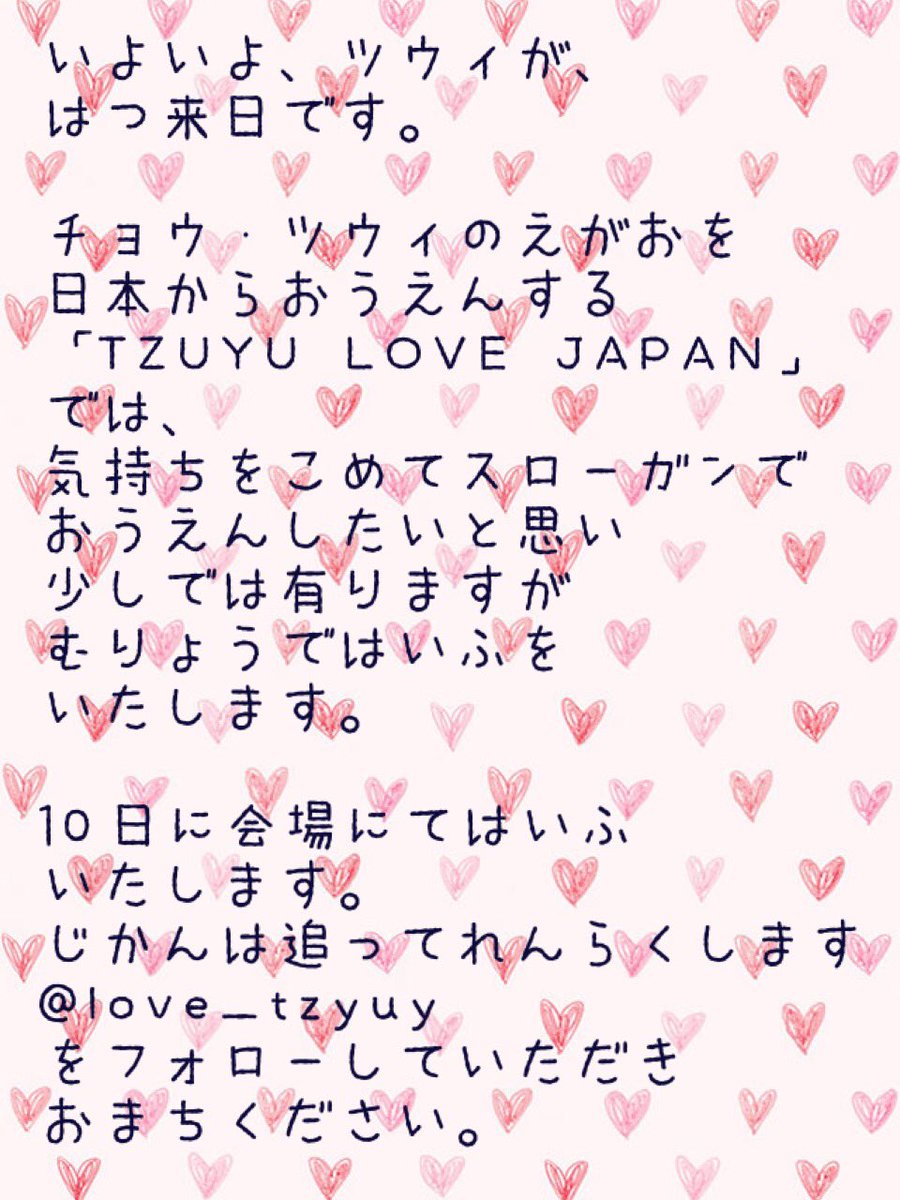 いよいよ、ツウィが、
はつ来日です。
チョウ・ツウィのえがおを
日本からおうえんする
「TZUYU LOVE JAPAN」
では、
気持ちをこめてスローガンで
おうえんしたいと思い
少しでは有りますが
むりょうではいふを
いたします。
10日に会場にてはいふ
いたします。
じかんは追ってれんらくします
@love_tzyuy
をフォローしていただき
おまちください。